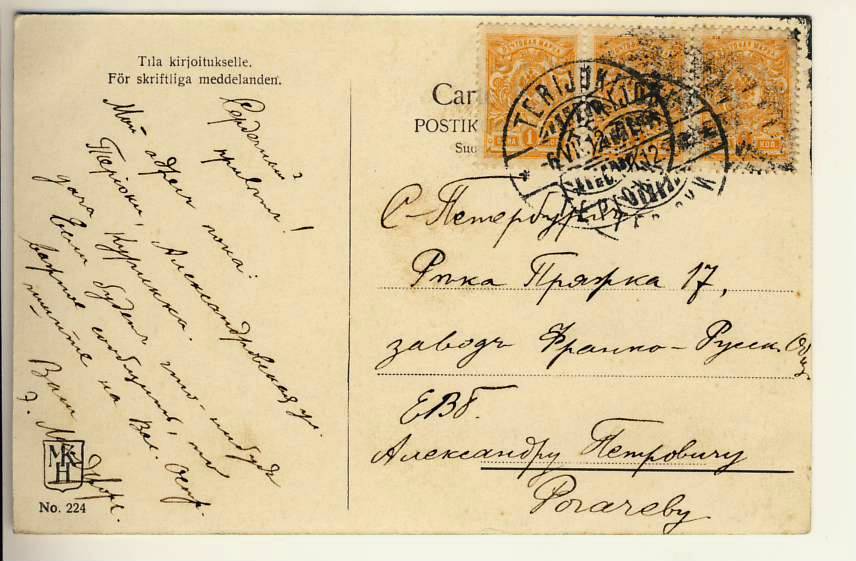 Tila kirjoitukselle.
För skriftliga meddelanden.
Сердечный
привет!
Мой адрес пока:
Терiоки, Александровская ул.
дача Куринка.
Если будет что-нибудь
важное сообщить, то
пишите на Вас. Остр.
Ваш
No. 224
MK
H
Cart
POSTIK
Suo
TERIJOKI
С-Петербургъ
Рѣка Пряжка 17,
заводъ Франко-Русск. Общ.
ЕВБ.
Александру Петровичу
Рогачеву